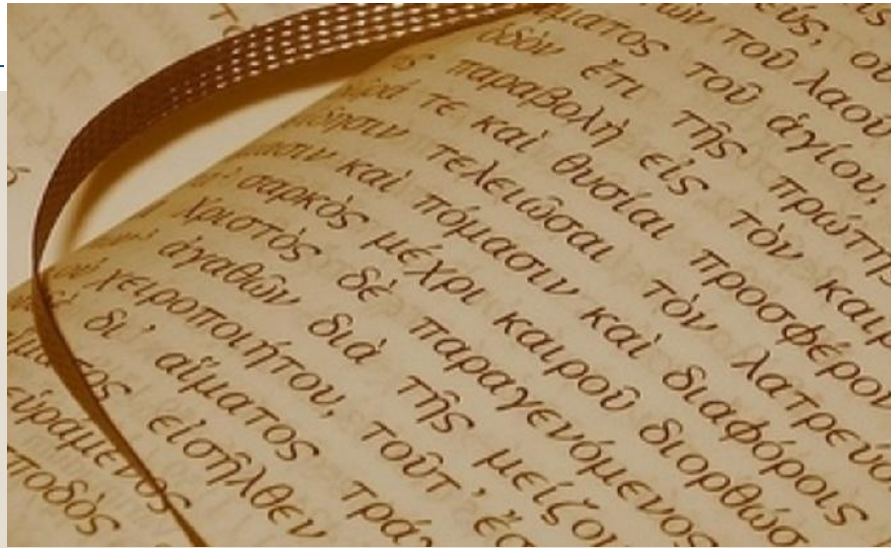 εύς, οὐ
ων τοῦ λαοῦ
ματος τοῦ ἁγίου,
ὁδὸν ἔτι τῆς πρώτη
ς παραβολὴ εἰς τὸν καιρ
ρά τε καὶ θυσίαι προσφέρον
ίδησιν τελειῶσαι τὸν λατρεύο
μασιν καὶ πόμασιν καὶ διαφόροις
σαρκὸς μέχρι καιροῦ διορθώσ
Χριστὸς δὲ παραγενόμενος
ἀγαθῶν διὰ τῆς μείζο
χειροποιήτου, τοῦτ' ἔσ
δι' αἵματος τρά
ματος εἰσῆλθεν
εὑράμενος
ποδὸς